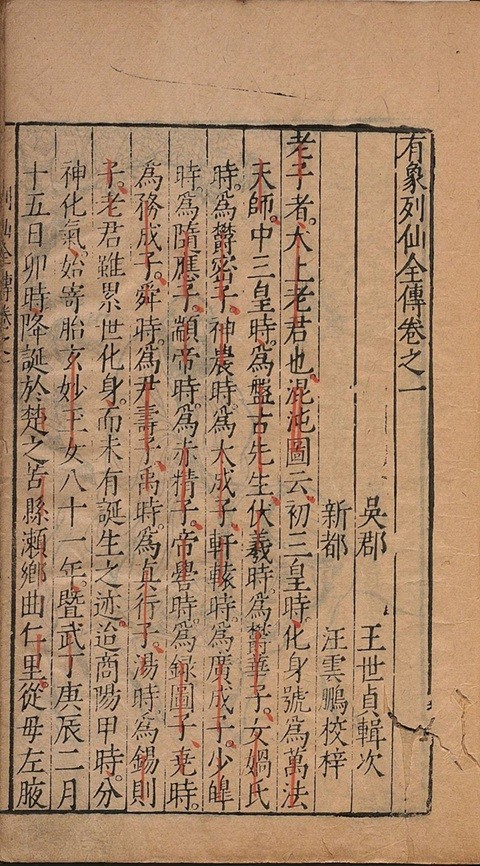 有象列仙全傳卷之一
吳郡 王世貞輯次
新都 汪雲鵬校梓
老子者。大上老君也。混沌圖云。初三皇時。化身號爲萬法
天師。中三皇時。爲盤古先生。伏羲時。爲鬱華子。女媧氏
時。爲鬱密子。神農時。爲大成子。軒轅時。爲廣成子。少皡
時。爲隨應子。顓帝時。爲赤精子。帝嚳時。爲錄圖子。堯時。
爲務成子。舜時。爲尹壽子。禹時。爲真行子。湯時。爲錫則
子。老君雖累世化身。而未有誕生之迹。迨商陽甲時。分
神化氣。始寄胎玄妙王女八十一年。暨武丁庚辰二月
十五日卯時。降誕於楚之苦縣瀨鄉曲仁里。從母左腋